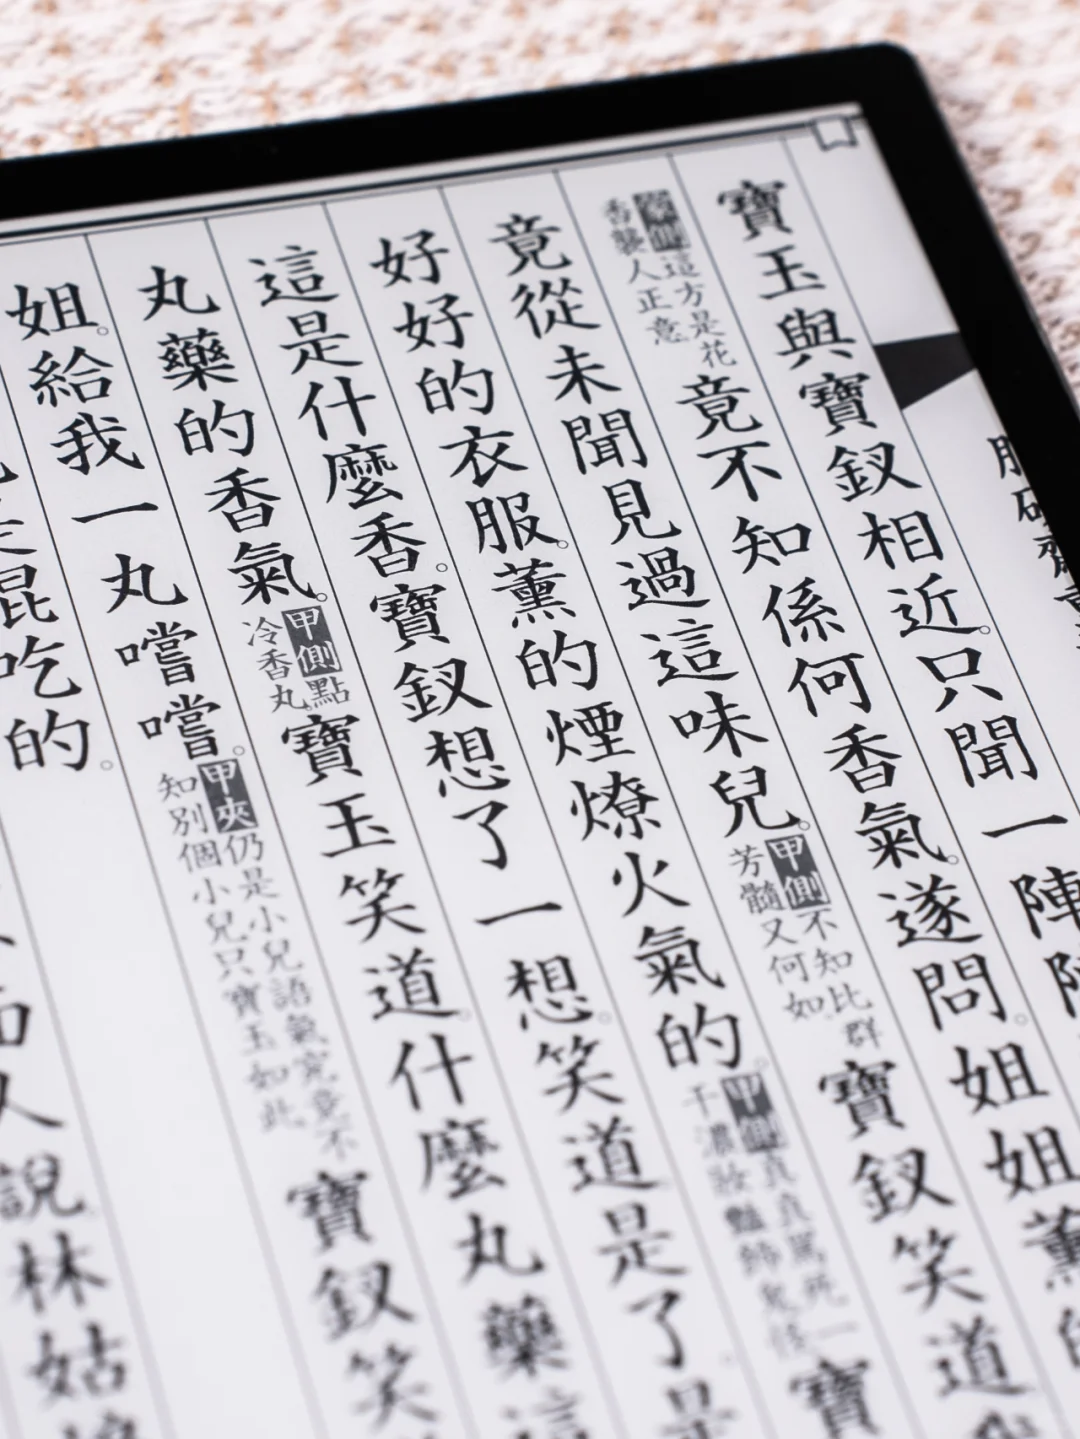 脂硯齋
寶玉與寶釵相近。只聞一陣陣
這方是花
香襲人正意
竟不知係何香氣。遂問。姐姐薰的
竟從未聞見過這味兒。
甲側不知比群
芳髓又何如。
寶釵笑道
好好的衣服。薰的煙燎火氣的。
甲側真真罵死一
干濃妝艷飾鬼怪
寶
這是什麼香。寶釵想了一想。笑道。是了。是
丸藥的香氣。
甲側點
冷香丸。
寶玉笑道。什麼丸藥這
姐。給我一丸嚐嚐。
甲夾仍是小兒語氣究竟不
知別個小兒只寶玉如此
寶釵笑
混吃的。
人說林姑娘